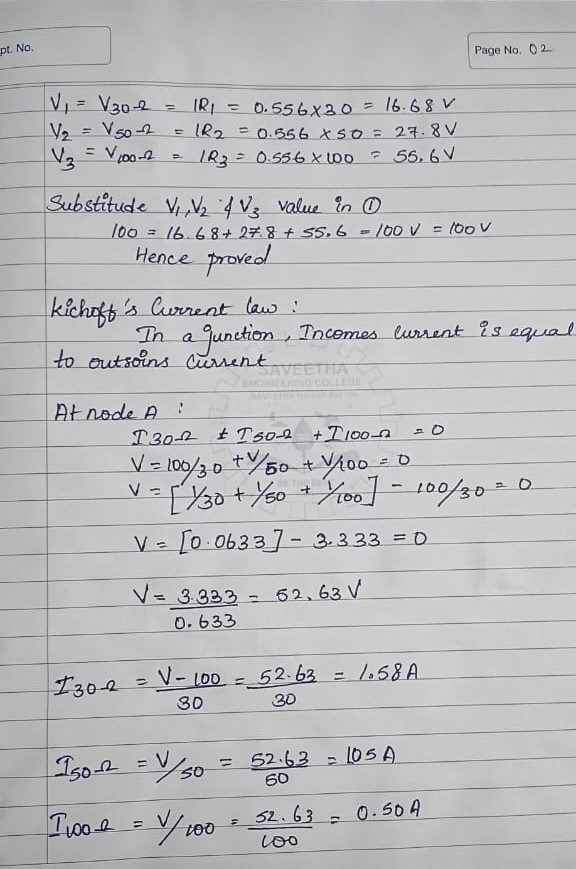 pt. No.
Page No. 02
V₁ = V30Ω = IR₁ = 0.556×30 = 16.68 V
V₂ = V50Ω = IR₂ = 0.556 × 50 = 27.8V
V₃ = V100Ω = IR₃ = 0.556 × 100 = 55.6V
Substitute V₁,V₂ & V₃ value in ①
100 = 16.68 + 27.8 + 55.6 = 100 V = 100 V
Hence proved
kichoff's Current law :
In a junction, Incomes current is equal
to outsoins current
SAVEETHA
ENGINEERING COLLEGE
At node A :
I30Ω ± I50Ω + I100Ω = 0
V = 100/30 + V/50 + V/100 = 0
V = [1/30 + 1/50 + 1/100] - 100/30 = 0
V = [0.0633] - 3.333 = 0
V = 3.333/0.633 = 52.63 V
I30Ω = V-100/30 = 52.63/30 = 1.58A
I50Ω = V/50 = 52.63/50 = 1.05 A
I100Ω = V/100 = 52.63/100 = 0.50A